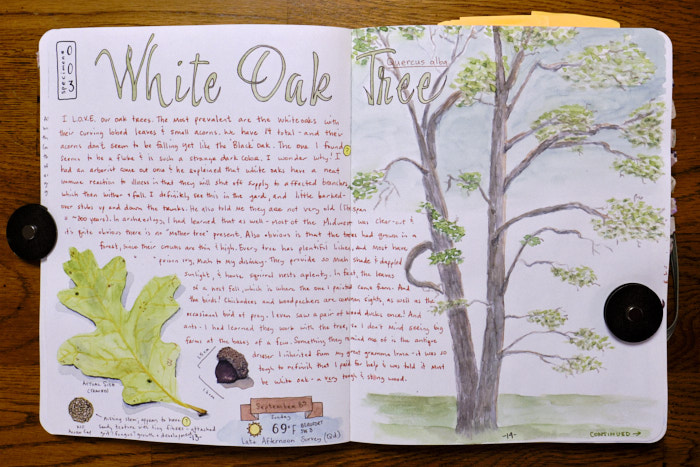 specimen 003
White Oak Tree
Quercus alba
I L.O.V.E. our oak trees. The most prevalent are the white oaks with
their curving lobed leaves & small acorns. We have 14 total - and their
acorns don't seem to be falling yet like the Black Oak. The one I found
seems to be a fluke & is such a strange dark color. I wonder why! I
had an arborist come out once & he explained that white oaks have a neat
immune reaction to illness in that they will shut off supply to affected branches,
which then wither & fall. I definitely see this in the yard, and little barked-
over stubs up and down the trunks. He also told me they are not very old (lifespan
is ~300 years). In archaeology, I had learned that as well - most of the Midwest was clear-cut &
it's quite obvious there is no "mother tree" present. Also obvious is that the trees had grown in a
forest, since their crowns are thin & high. Every tree has plentiful lichen, and most have
poison ivy, much to my dismay. They provide so much shade & dappled
sunlight, & house squirrel nests aplenty. In fact, the leaves
of a nest fell, which is where the one I painted came from. And
the birds! Chickadees and woodpeckers are common sights, as well as the
occasional bird of prey. I even saw a pair of wood ducks once! And
ants - I had learned they work with the tree, so I don't mind seeing big
farms at the bases of a few. Something they remind me of is the antique
dresser I inherited from my great gramma Irma - it was so
tough to refinish that I paid for help & was told it must
be white oak - a very tough & strong wood.
Actual Size
(traced)
1.5 cm
1.6 cm
Missing stem, appears to have
woody texture with tiny fibers attached
September 25
Sunday
69°F
Late Afternoon Survey
-14-
CONTINUED →